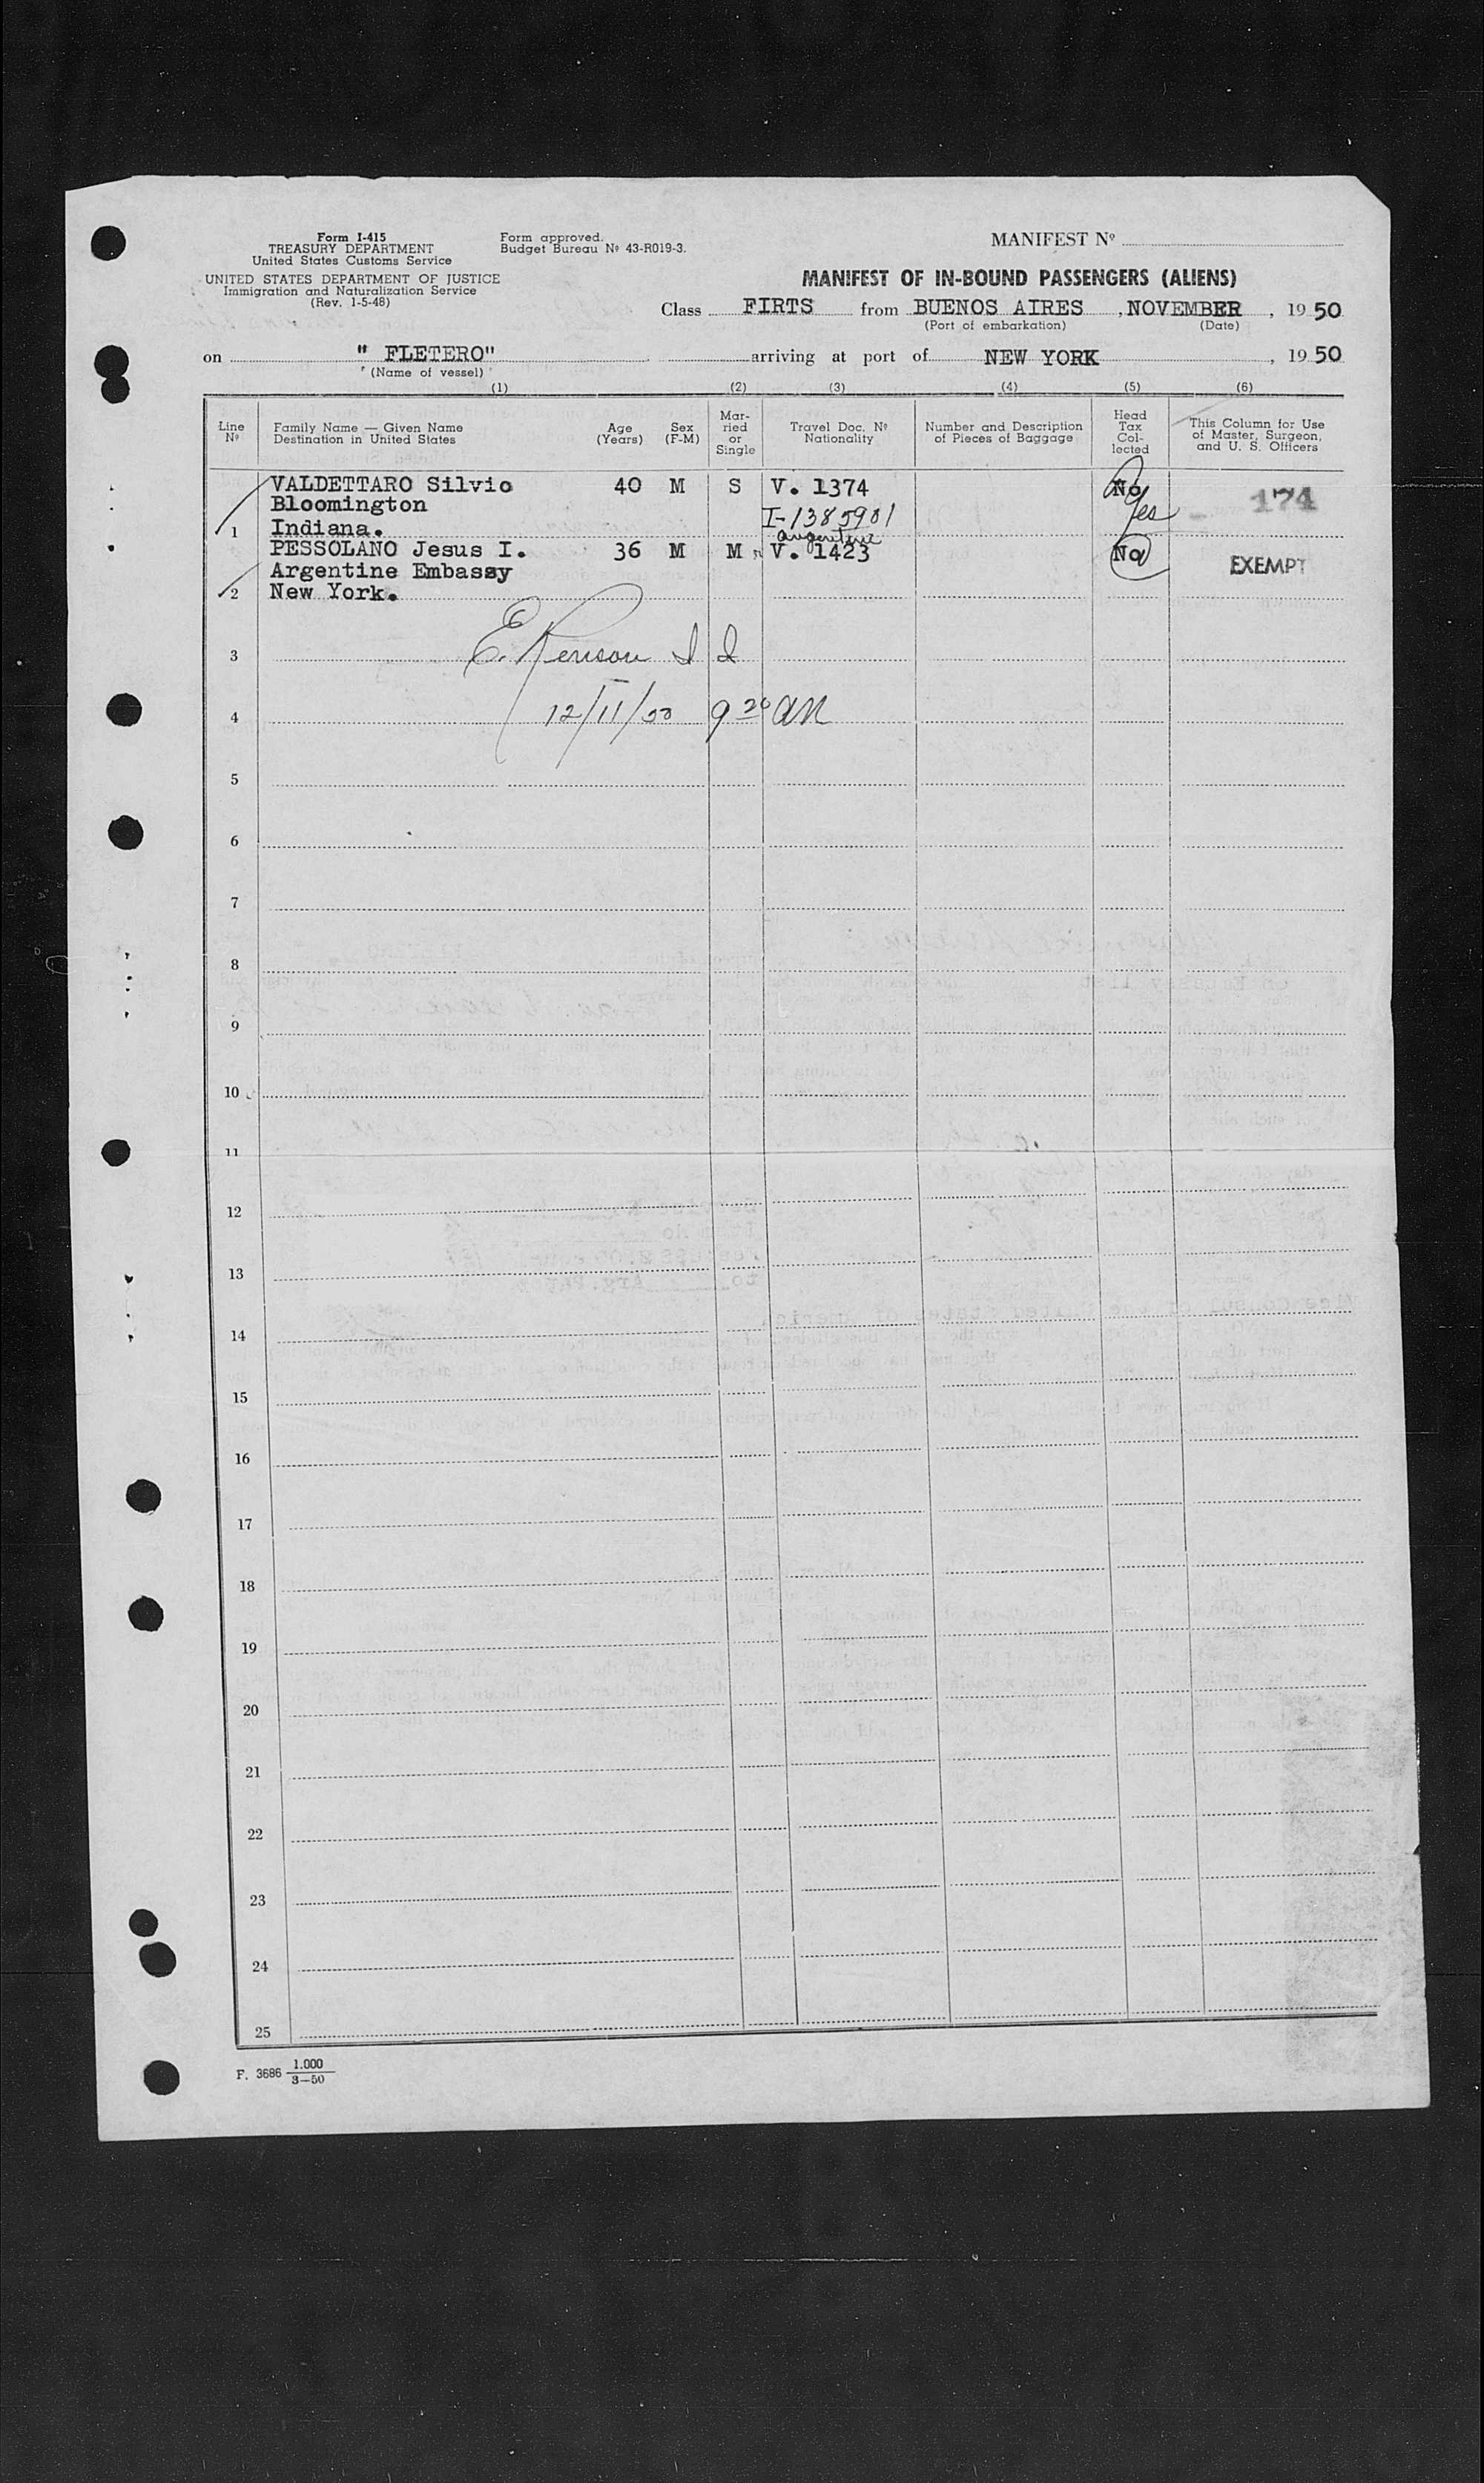 Form I-415
TREASURY DEPARTMENT
United States Customs Service
UNITED STATES DEPARTMENT OF JUSTICE
Immigration and Naturalization Service
(Rev. 1-5-48)
Form approved.
Budget Bureau Nº 43-R019-3.
MANIFEST Nº
MANIFEST OF IN-BOUND PASSENGERS (ALIENS)
Class FIRTS from BUENOS AIRES , NOVEMBER , 19 50
(Port of embarkation) (Date)
on " FLETERO" arriving at port of NEW YORK , 19 50
(Name of vessel)
(1) (2) (3) (4) (5) (6)
Line Nº
Family Name — Given Name
Destination in United States
Age (Years)
Sex (F-M)
Mar-ried or Single
Travel Doc. Nº
Nationality
Number and Description
of Pieces of Baggage
Head Tax Col-lected
This Column for Use
of Master, Surgeon,
and U. S. Officers
VALDETTARO Silvio 40 M S V. 1374 No 174
Bloomington I-1385901 Yes
1 Indiana. argentine
PESSOLANO Jesus I. 36 M M " V. 1423 No EXEMPT
Argentine Embassy
2 New York.
3 E.
4 12/11/50 9 20 AM
5
6
7
8
9
10
11
12
13
14
15
16
17
18
19
20
21
22
23
24
25
F. 3686 1.000
3-50